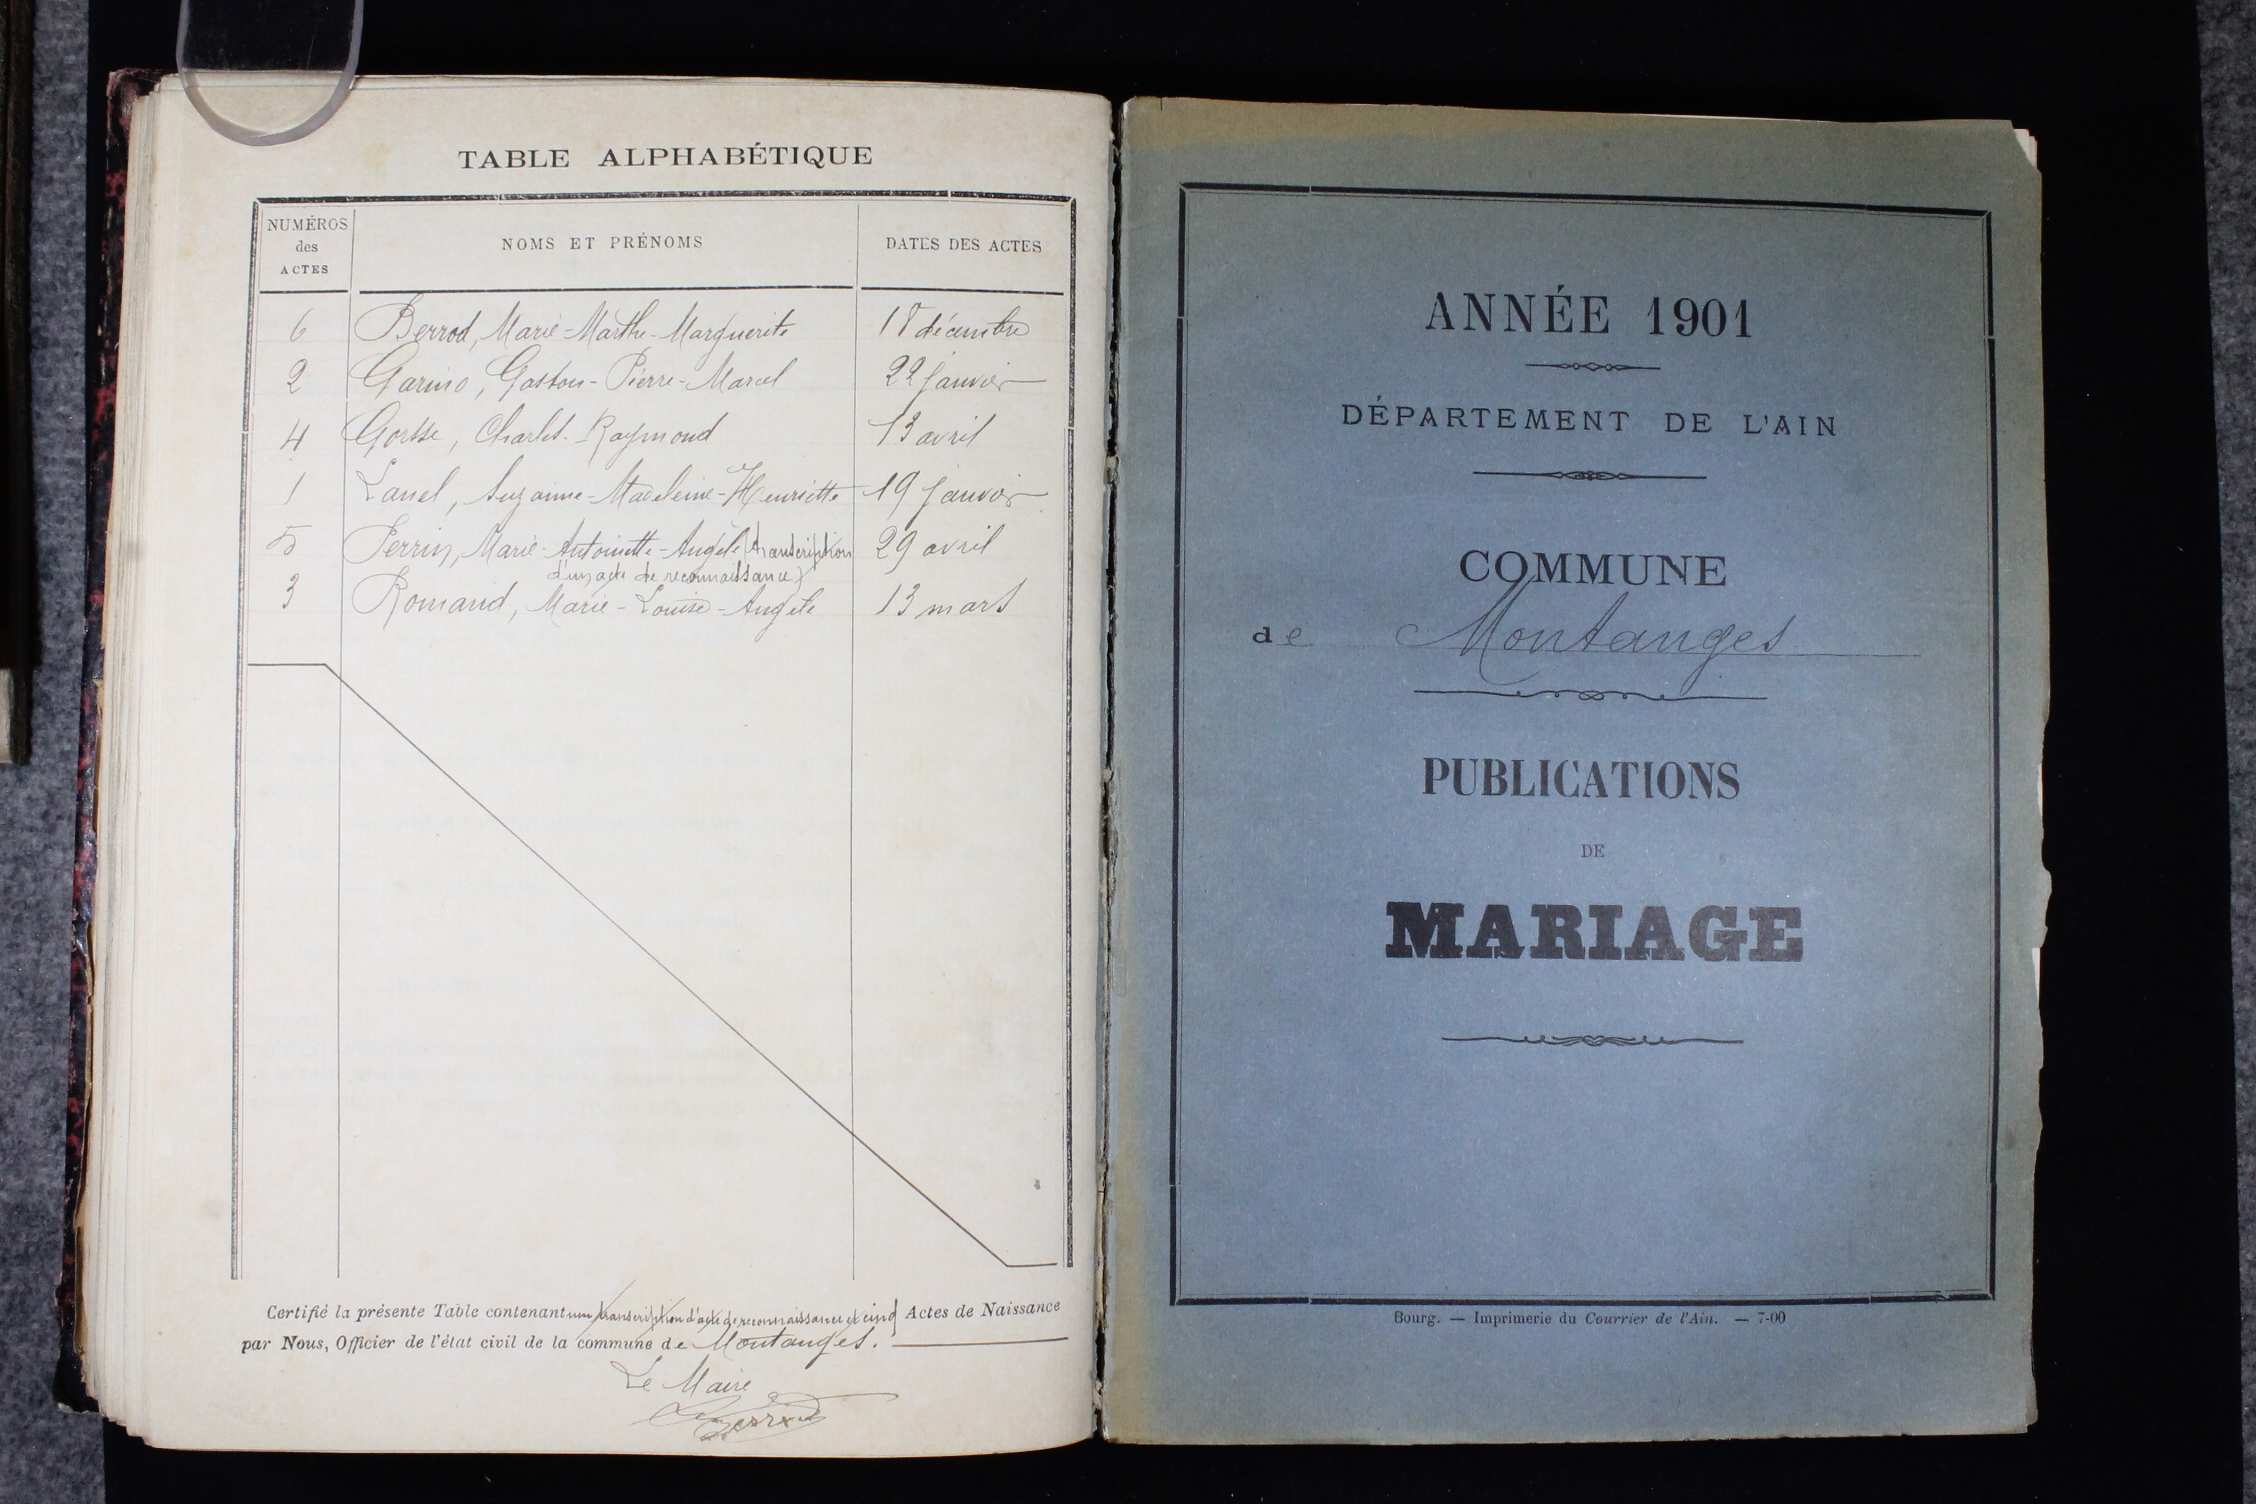 TABLE ALPHABÉTIQUE
NUMÉROS des ACTES NOMS ET PRÉNOMS DATES DES ACTES
6 Berrod, Marie-Marthe-Marguerite 18 décembre
2 Garino, Gaston-Pierre-Marcel 22 janvier
4 Gorsse, Charles-Raymond 13 avril
1 Lanel, Suzanne-Madeleine-Henriette 19 janvier
5 Perrin, Marie-Antoinette-Angèle (transcription 29 avril
d'un acte de reconnaissance)
3 Romand, Marie-Louise-Angèle 13 mars
Certifié la présente Table contenant une transcription d'acte de reconnaissance et cinq Actes de Naissance
par Nous, Officier de l'état civil de la commune de Montanges.
Le Maire
Berrod
ANNÉE 1901
DÉPARTEMENT DE L'AIN
COMMUNE
de Montanges
PUBLICATIONS
DE
MARIAGE
Bourg. — Imprimerie du Courrier de l'Ain. — 7-00